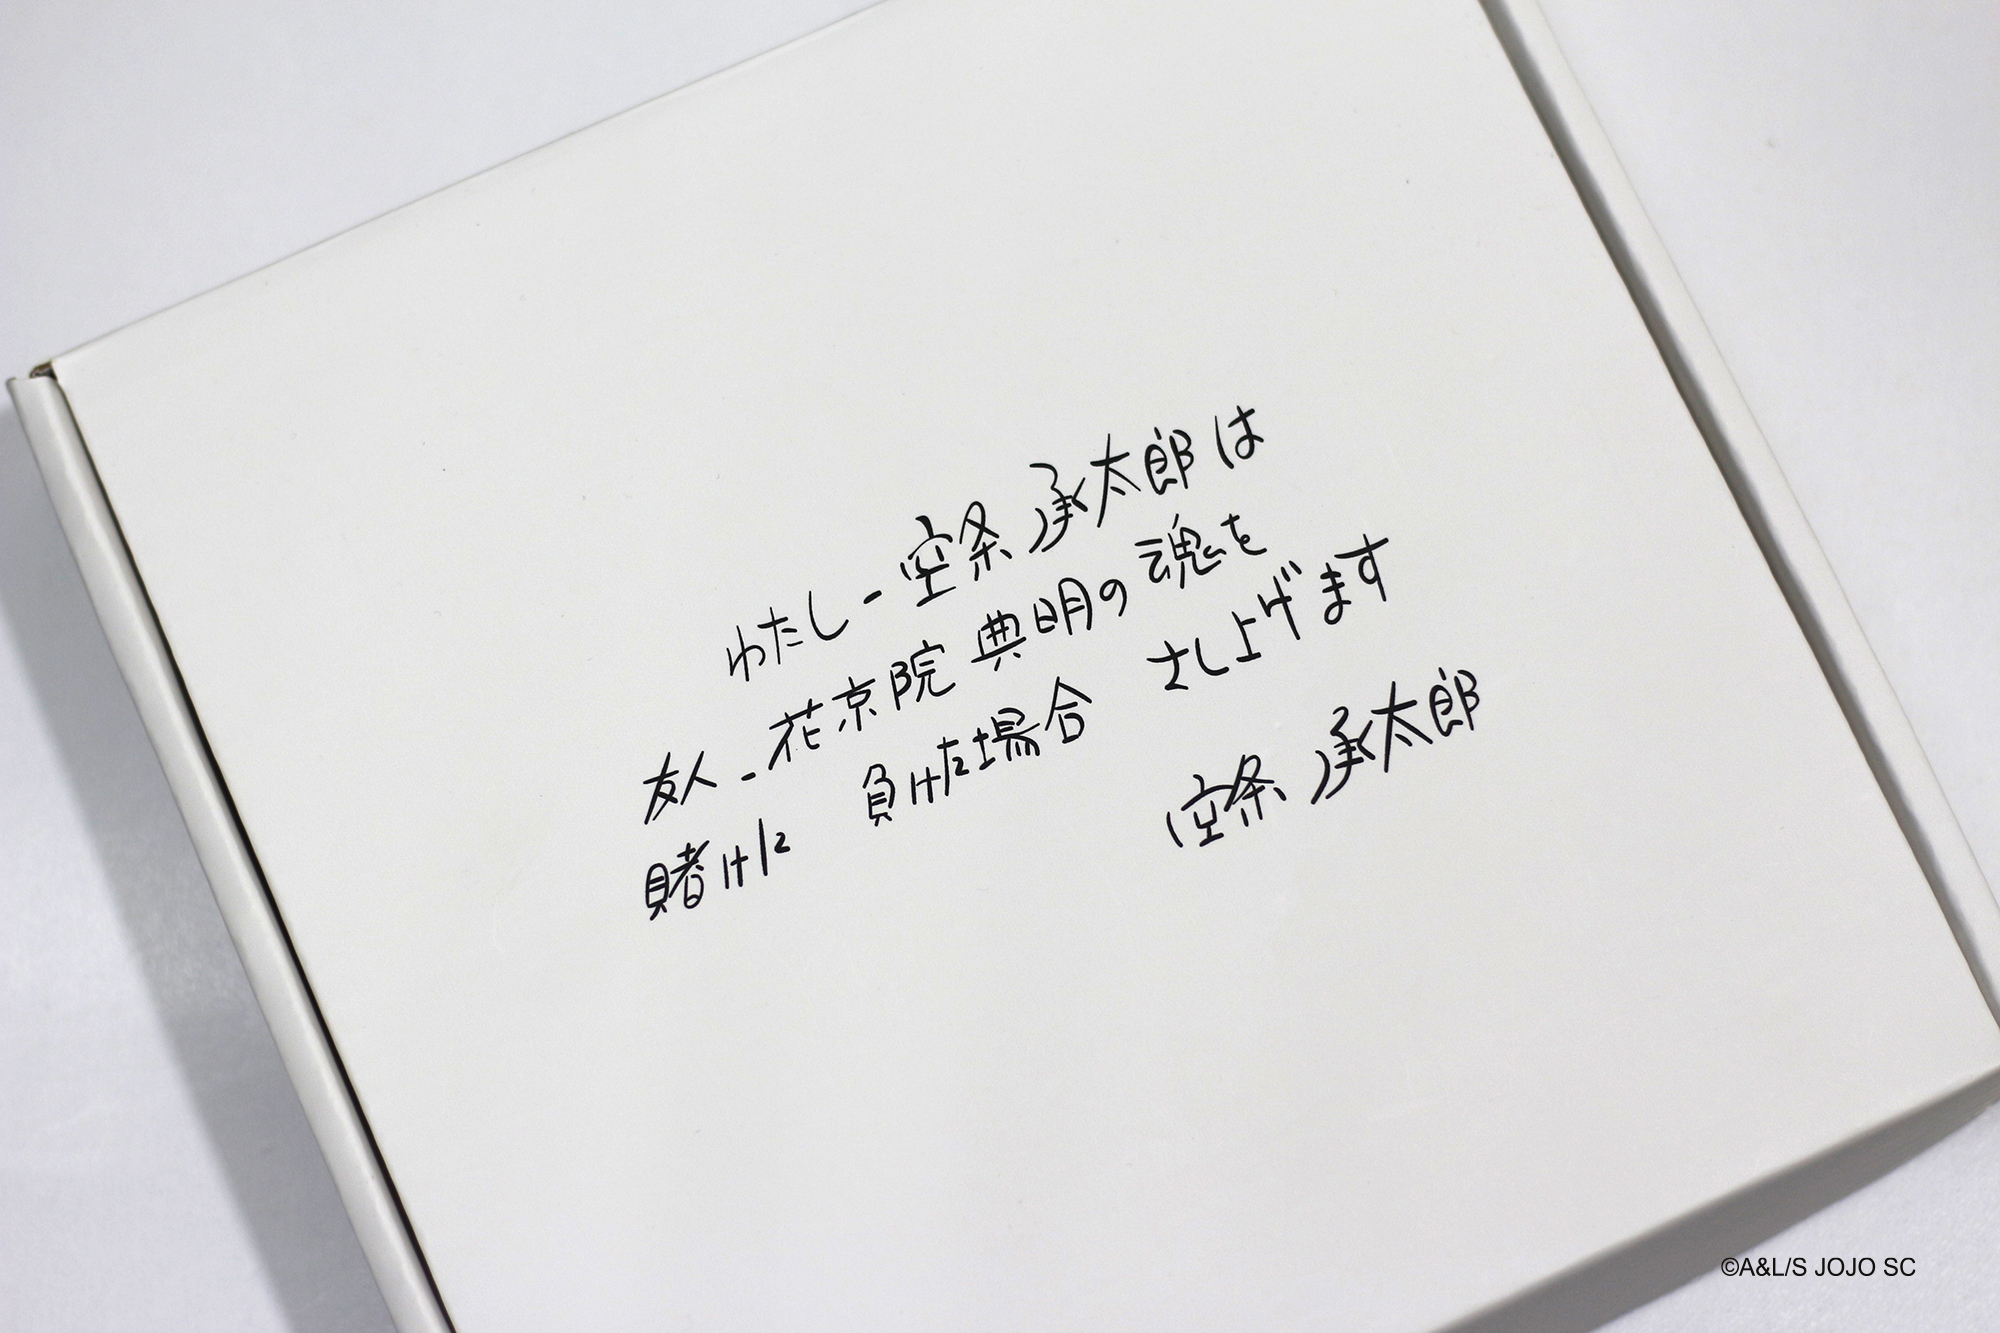 わたし-空条 承太郎は
友人-花京院 典明の魂を
賭けた 負けた場合 さし上げます
空条 承太郎
©A&L/S JOJO SC